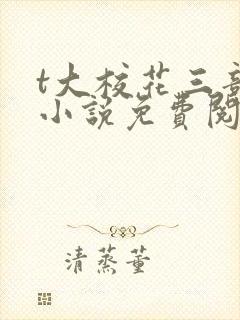 t大校花三部
小說免費閱
清蒸董